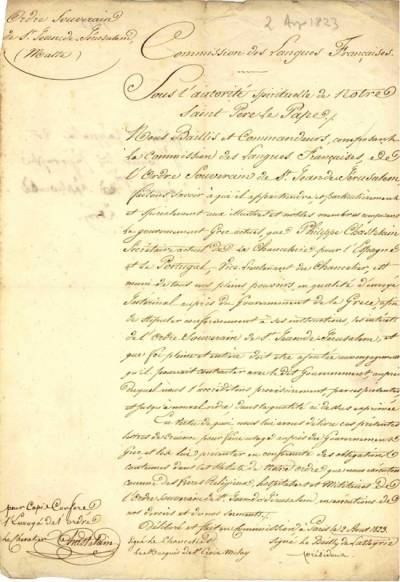 Ordre Souverain
de St. Jean de Jérusalem,
(Malte)
2 Avr 1823
Commission des Langues Françaises.
Sous l'autorité spirituelle de Notre
Saint Pere le Pape,
Nous Baillis et Commandeurs, composant
la Commission des Langues Françaises, de
l'Ordre Souverain de St. Jean de Jérusalem
faisons savoir à qu'il appartiendra, et particulièrement
et spécialement aux illustres et nobles membres composant
le gouvernement Grec actuel, que Philippe Chastelain
Secrétaire actuel de la Chancelerie pour l'Espagne
et le Portugal, Vice Lieutenant du Chancelier, est
muni de tous nos pleins pouvoirs, en qualité d'envoyé
auprès du Gouvernement de la Grece, afin
de stipuler conformément à ses instructions, les intérets
de l'Ordre Souverain de St. Jean de Jérusalem, et
que foi pleine et entiere doit être ajoutée aux engagemens
qu'il pourroit contracter avec le dit Gouvernement, auprès
duquel nous l'accréditons provisoirement, par ces présentes
et jusqu'à nouvel ordre, dans la qualité ci dessus exprimée
En foi de quoi, nous lui avons délivré ces présentes
lettres de pour faire usage auprès du Gouvernement
Grec et lui procurer en conformité des obligations
contenues dans les Statuts de Notre ordre que nous
comme de Vrais Religieux, hospitaliers et Militaires de
l'Ordre Souverain de St. Jean de Jérusalem,
de nos devoirs et de nos sermens.
Délibéré et fait en Commission à Paris le 2 Avril 1823.
signé le Chancelier
le Marquis de Ste Croix Molay
signé le Bailly de Lasteyrie
président
pour Copie Conforme
l'Envoyé de l'ordre
le Chevalier Chastelain